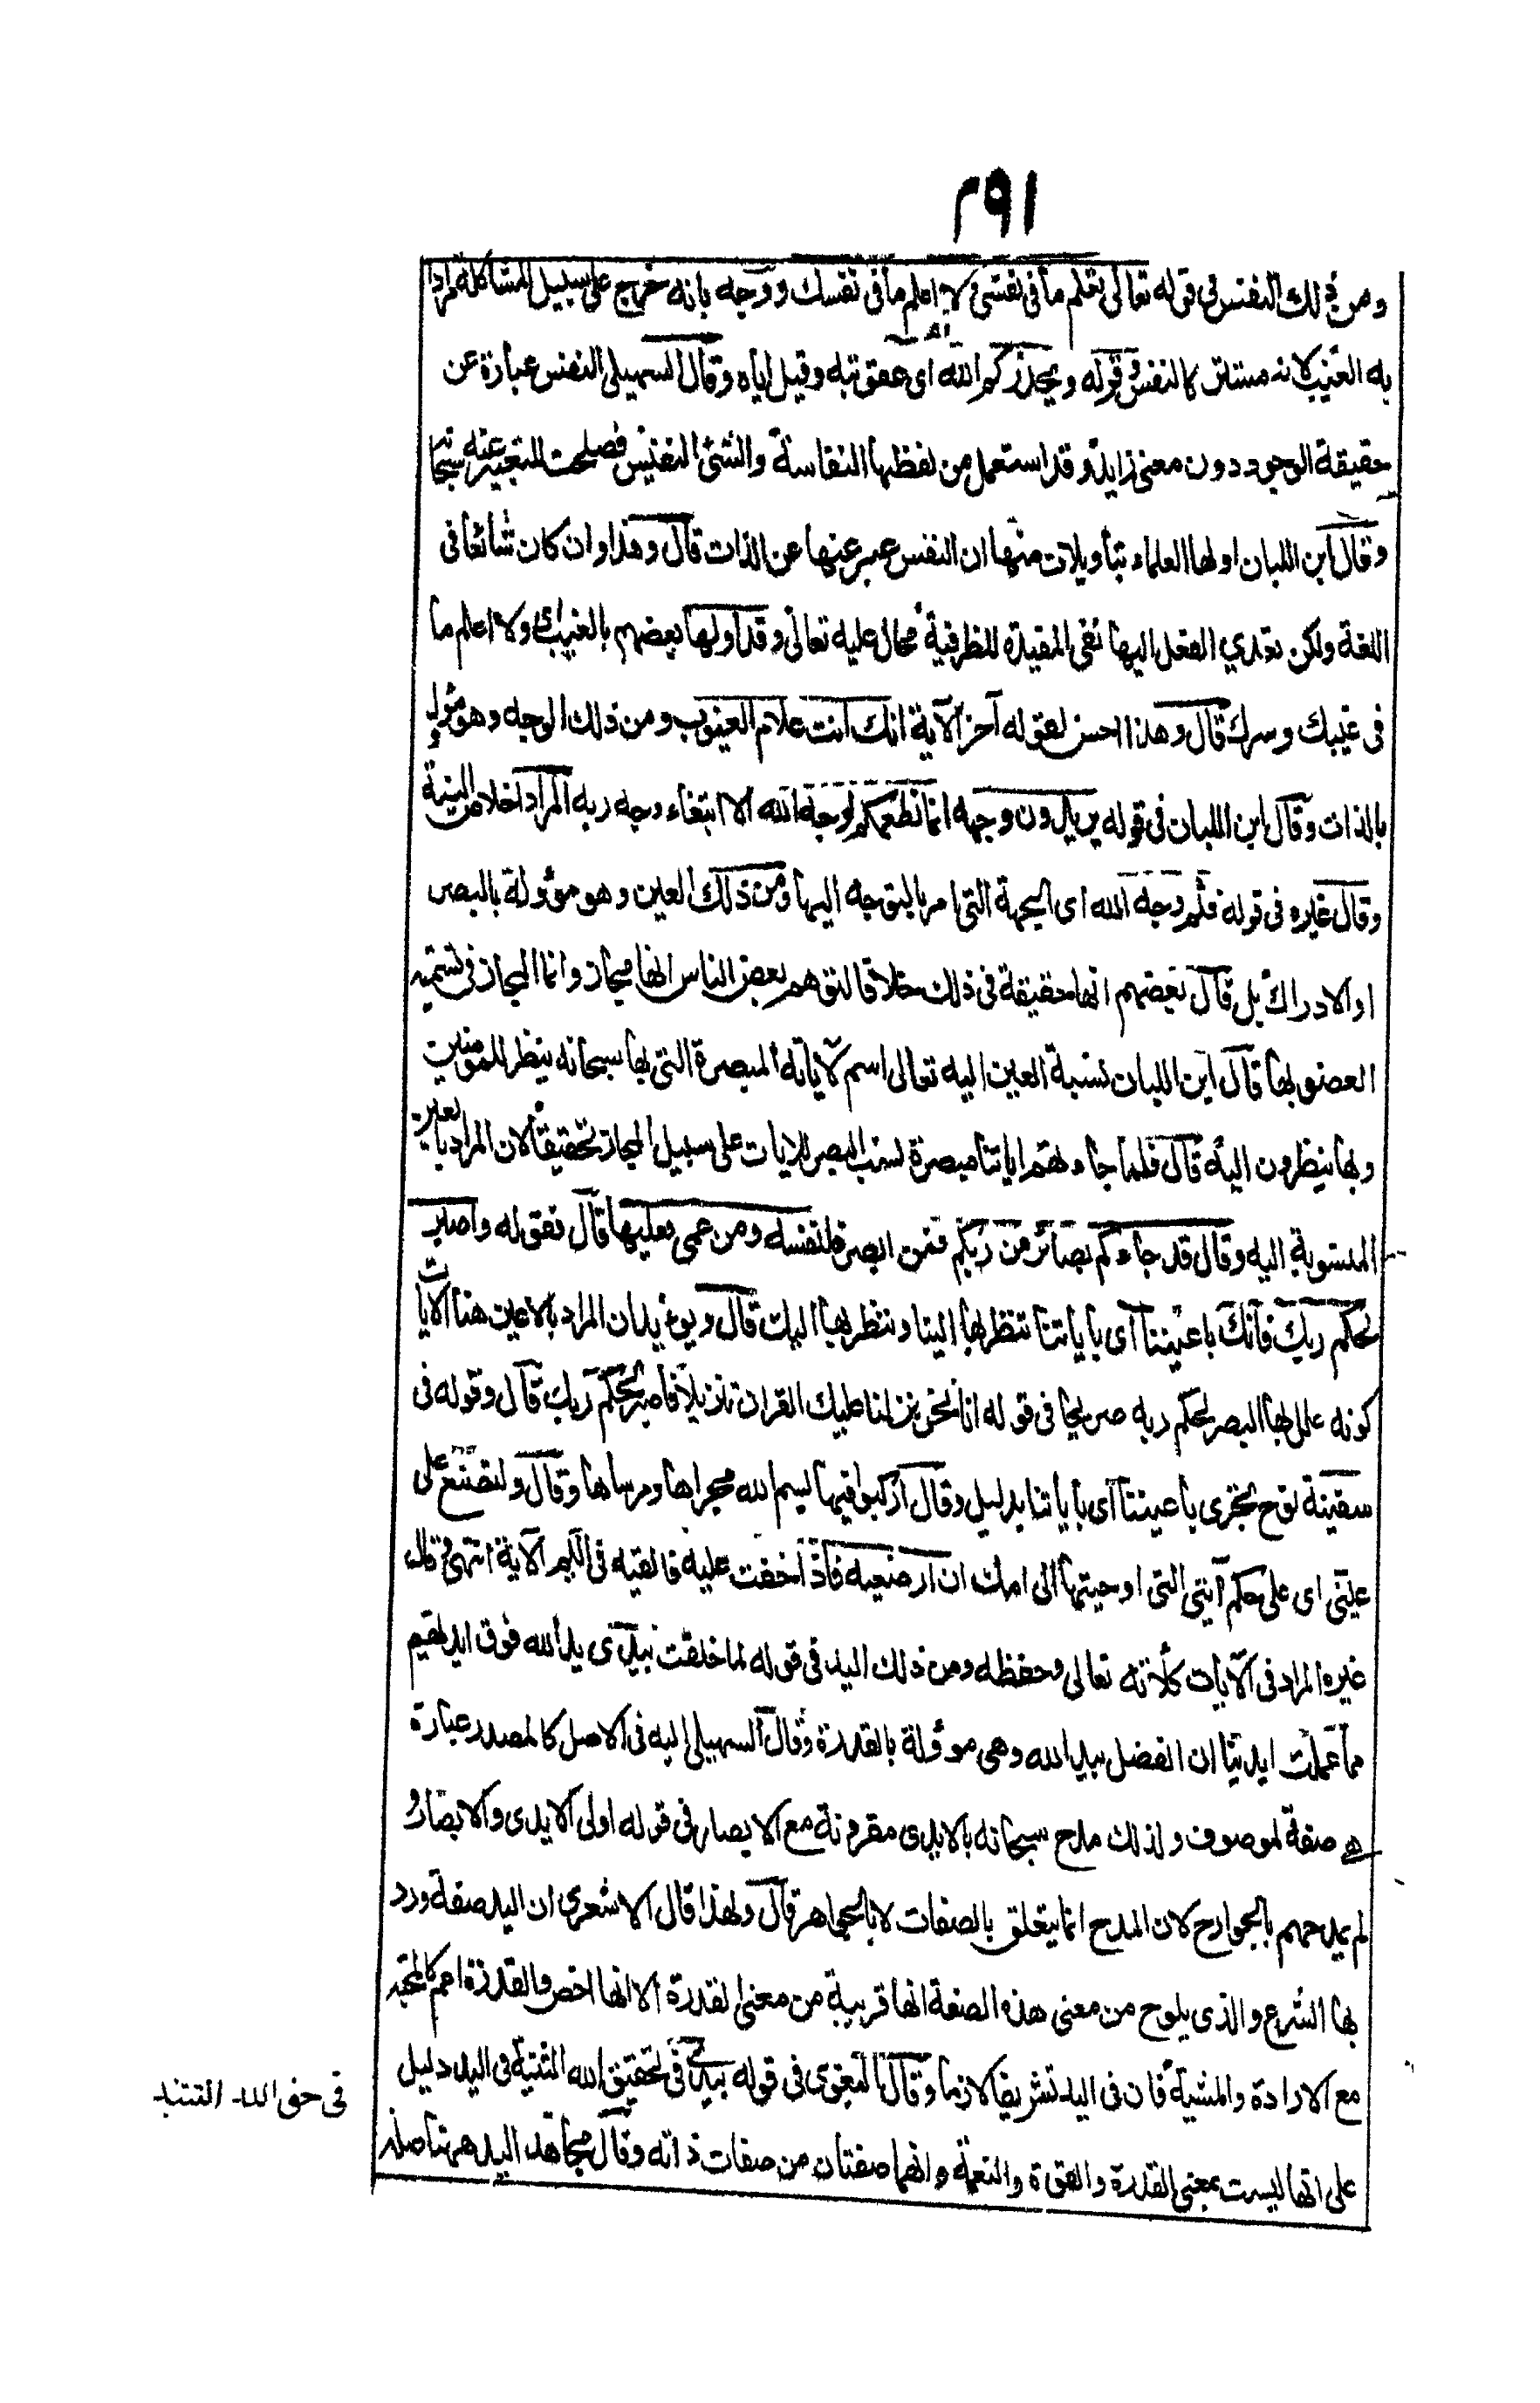 ٢٩١
ومن ذلك النفس في قوله تعالى تعلم ما في نفسى ولا اعلم ما في نفسك ووجه بانه خرج على سبيل المشاكلة مرادا
به الغيب لانه مستتر كالنفس وقوله ويحذركم الله اى عقوبته وقيل اياه وقال السهيلى النفس عبارة عن
حقيقة الوجود دون معنى زايد وقد استعمل من لفظها النفاسة والشئ النفيس فصلحت للتعبير عنه سبحانه
وقال ابن اللبان اولها العلماء بتأويلات منها ان النفس عبر عنها عن الذات قال وهذا وان كان شائعا فى
اللغة ولكن تعدي الفعل اليها بفى المقيدة للظرفية محال عليه تعالى وقد اولها بعضهم بالغيب اى ولا اعلم ما
فى غيبك وسرك قال وهذا احسن لقوله آخر الآية انك انت علام الغيوب ومن ذلك الوجه وهو مؤول
بالذات وقال ابن اللبان فى قوله يريدون وجهه انما نطعمكم لوجه الله الا ابتغاء وجه ربه المراد اخلاص النية
وقال غيره فى قوله فثم وجه الله اى الجهة التى امر بالتوجه اليها ومن ذلك العين وهو مؤولة بالبصر
او الادراك بل قال بعضهم انها حقيقة فى ذلك خلافا لتوهم بعض الناس انها مجاز وانما المجاز فى تسمية
العضو بها قال ابن اللبان نسبة العين اليه تعالى اسم لآياته المبصرة التى بها سبحانه ينظر للمؤمنين
وبها ينظرون اليه قال فلما جاءتهم اياتنا مبصرة نسب البصر للايات على سبيل المجاز تحقيقا لان المراد بالعين
المنسوبة اليه وقال قد جاءكم بصائر من ربكم فمن ابصر فلنفسه ومن عمى فعليها قال فقوله واصبر
لحكم ربك فانك باعيننا اى باياتنا تنظر بها الينا وننظر بها اليك قال ويؤيد ان المراد بالاعين هنا الايات
كونه علل بها الصبر لحكم ربه صريحا فى قوله انا نحن نزلنا عليك القران تنزيلا فاصبر لحكم ربك قال وقوله فى
سفينة نوح تجرى باعيننا اى باياتنا بدليل وقال اركبوا فيها بسم الله مجراها ومرساها وقال ولتصنع على
عينى اى على حكم آيتى التى اوحيتها الى امك ان ارضعيه فاذا خفت عليه فالقيه فى اليم الآية انتهى وقال
غيره المراد فى الآيات كلاءته تعالى وحفظه ومن ذلك اليد فى قوله لما خلقت بيدى يد الله فوق ايديهم
مما عملت ايدينا ان الفضل بيد الله وهى مؤولة بالقدرة وقال السهيلى اليد فى الاصل كالمصدر عبارة
صفة لموصوف ولذلك مدح سبحانه بالايدى مقرونة مع الابصار فى قوله اولى الايدى والابصار و
لم يمدحهم بالجوارح لان المدح انما يتعلق بالصفات لا بالجواهر قال ولهذا قال الاشعرى ان اليد صفة ورد
بها الشرع والذى يلوح من معنى هذه الصفة انها قريبة من معنى القدرة الا انها اخص والقدرة اعم كالمحبة
مع الارادة والمشية فان فى اليد تشريفا لازما وقال البغوى فى قوله بيدى فى تحقيق الله التثنية فى اليد دليل
على انها ليست بمعنى القدرة والقوة والنعمة وانهما صفتان من صفات ذاته وقال مجاهد اليد ههنا صلة